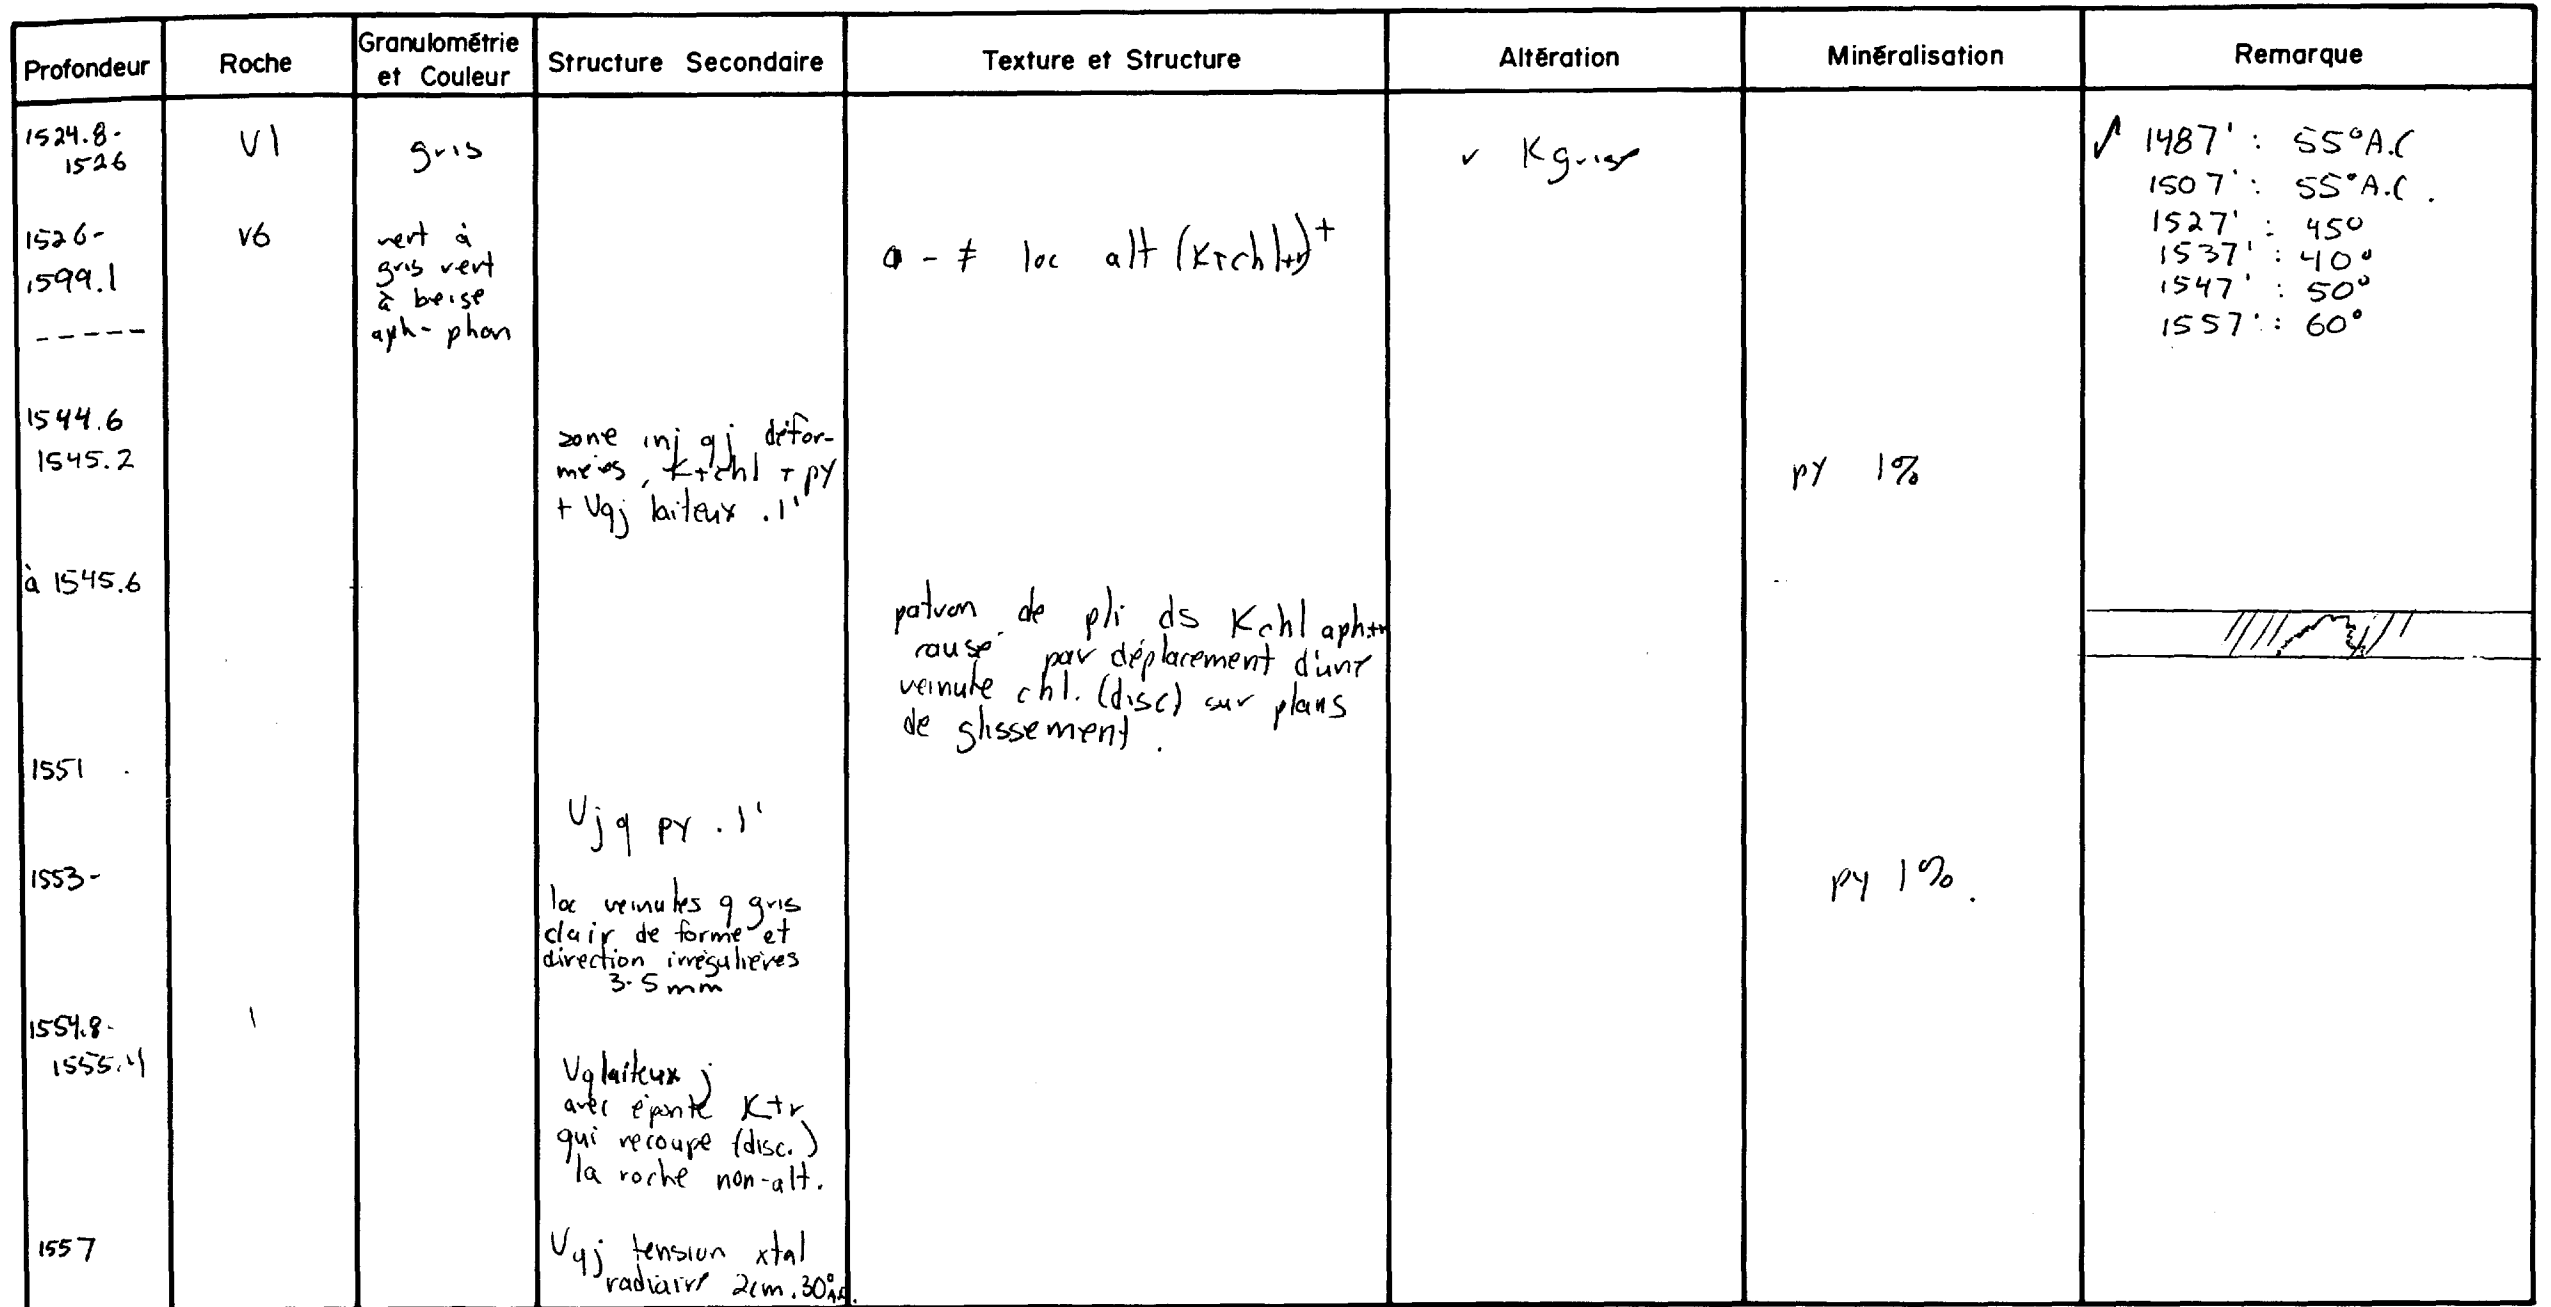 Profondeur
Roche
Granulométrie
et Couleur
Structure Secondaire
Texture et Structure
Altération
Minéralisation
Remarque
1524.8-
1526
V1
gris
K gris
1487' : 55° A.C
1507' : 55° A.C.
1527' : 45°
1537' : 40°
1547' : 50°
1557' : 60°
1526-
1599.1
-----
V6
vert à
gris vert
à beige
aph-phan
- ≠ loc alt (K+chl+r)+
1544.6
1545.2
zone inj qj défor-
mées, K+chl + py
+ Vqj laiteux .1'
py 1%
à 1545.6
patron de pli ds Kchl aph+r
causé par déplacement d'une
veinule chl. (disc) sur plans
de glissement.
1551
Vjq py .1'
1553-
loc veinules q gris
clair de forme et
direction irrégulières
3-5mm
py 1%.
1554.8-
1555.4
Vq laiteux j
avec éponte K+r
qui recoupe (disc.)
la roche non-alt.
1557
Vqj tension xtal
radiaire 2cm. 30° A.C.